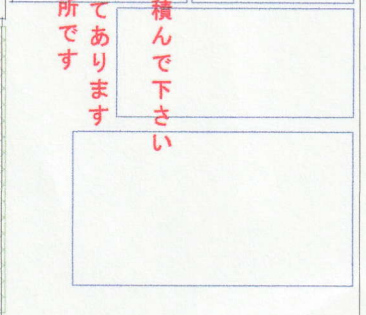 積んで下さい
てあります
所です